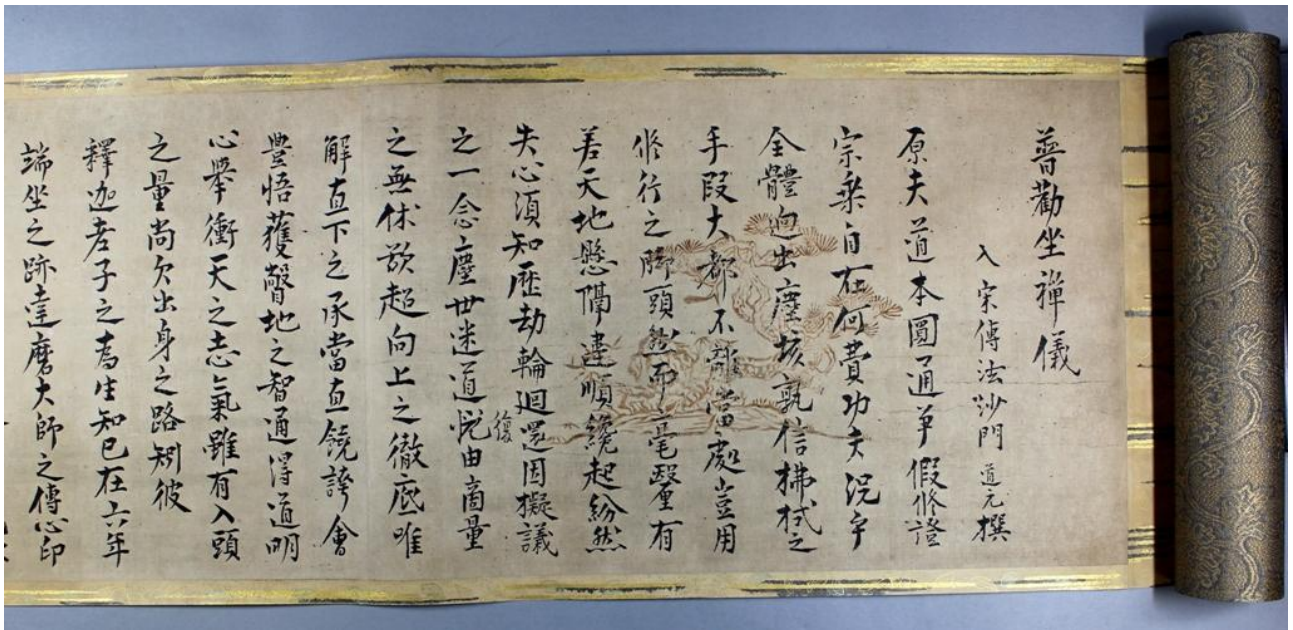 普勸坐禪儀
入宋傳法沙門道元撰
原夫道本圓通爭假修證
宗乘自在何費功夫況乎
全體逈出塵垓孰信拂拭之
手段大都不離當處豈用
修行之脚頭然而毫釐有
差天地懸隔違順纔起紛然
失心須知歷劫輪迴還因擬議
之一念塵世迷道復由商量
之無休欲超向上之徹底唯
解直下之承當直饒誇會
豐悟獲瞥地之智通得道明
心舉衝天之志氣雖有入頭
之量尚欠出身之路矧彼
釋迦老子之為生知已在六年
端坐之跡達磨大師之傳心印